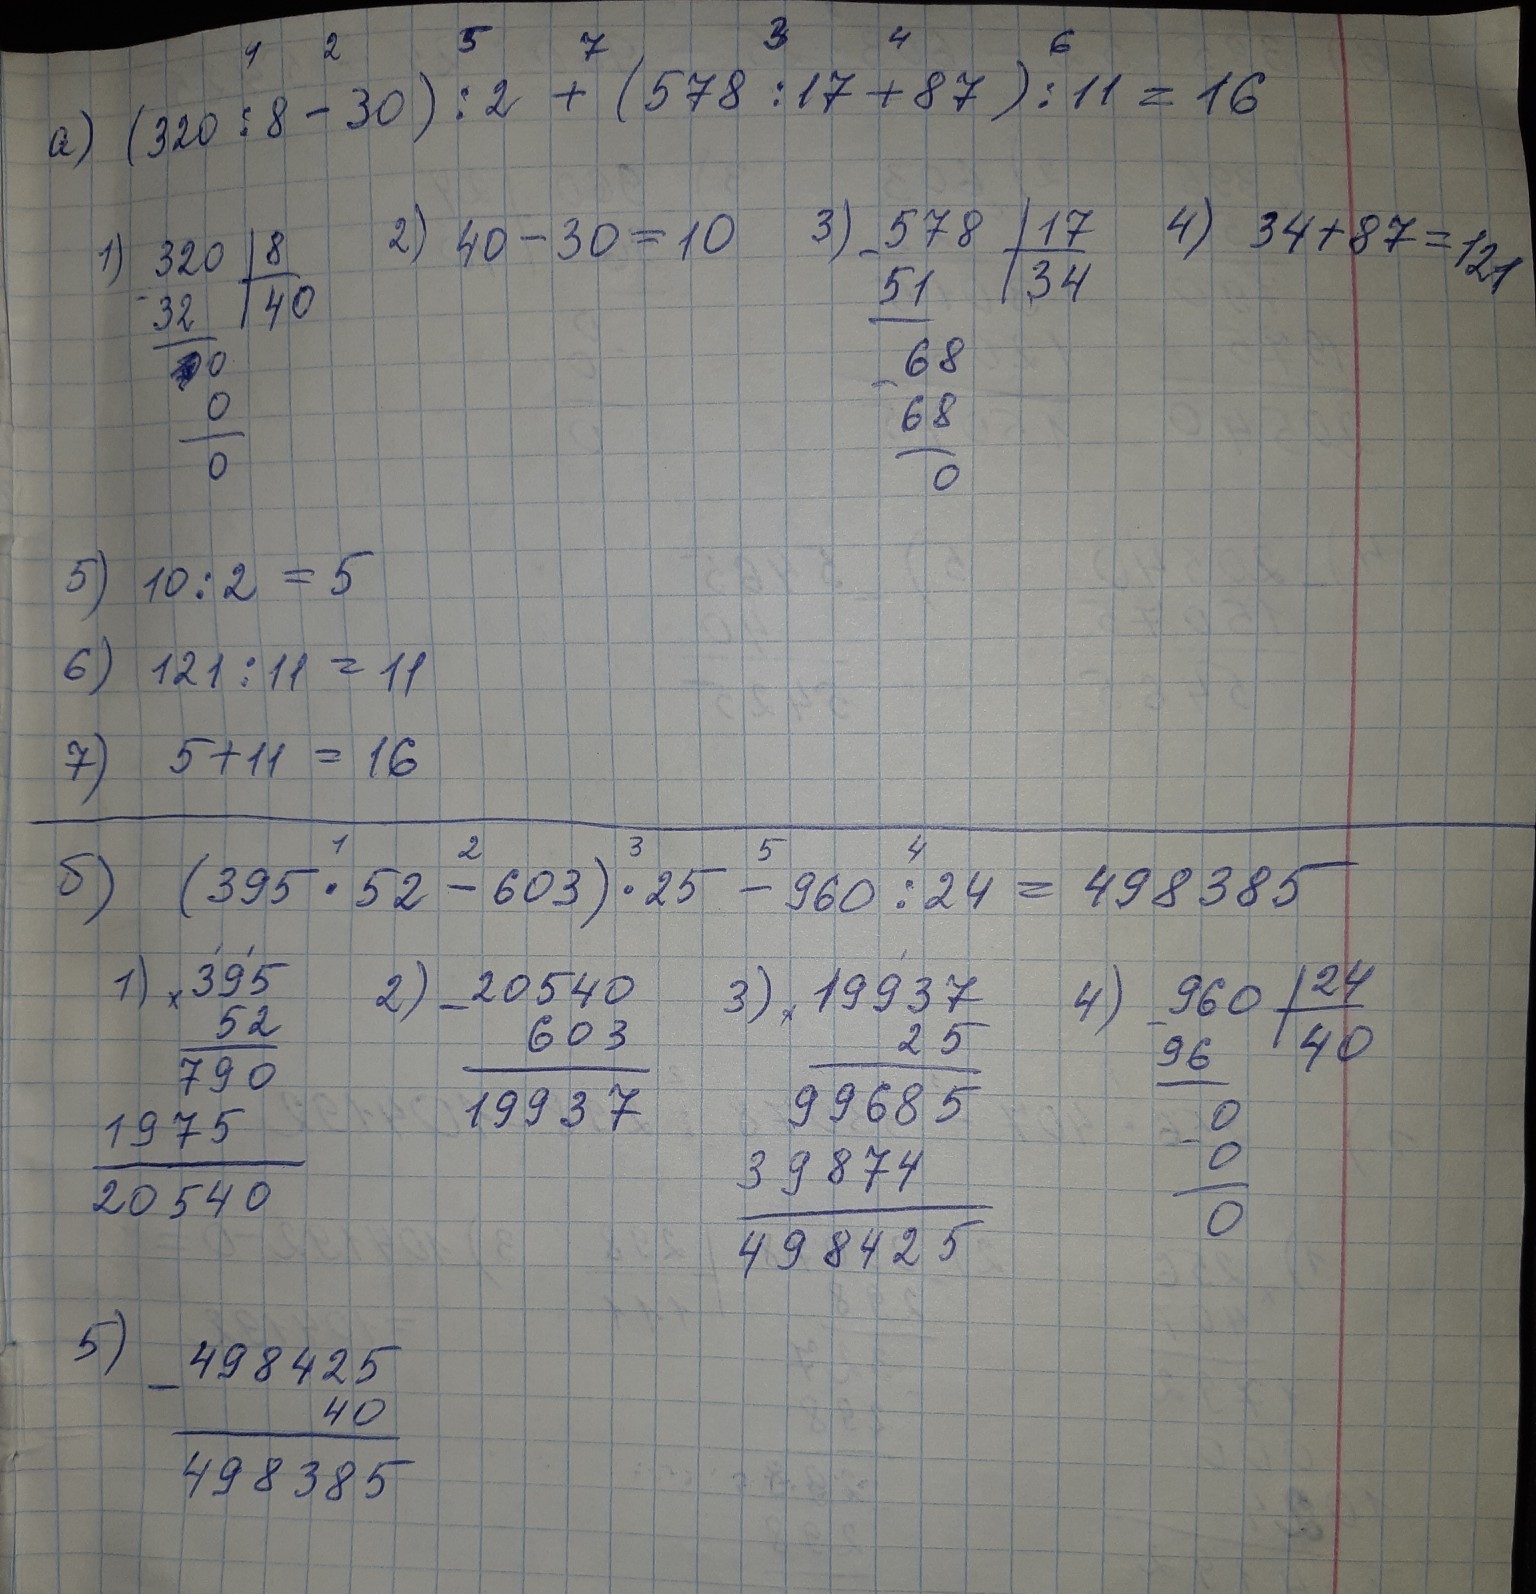 1 2 5 7 3 4 6
а) (320 : 8 - 30) : 2 + (578 : 17 + 87) : 11 = 16
1) 320 | 8 2) 40 - 30 = 10 3) - 578 | 17 4) 34 + 87 = 121
- 32 | 40 51 | 34
0 - 68
0 68
0 0
5) 10 : 2 = 5
6) 121 : 11 = 11
7) 5 + 11 = 16
1 2 3 5 4
б) (395 · 52 - 603) · 25 - 960 : 24 = 498385
1) x 395 2) - 20540 3) x 19937 4) - 960 | 24
52 603 25 96 | 40
790 19937 99685 - 0
1975 39874 0
20540 498425 0
5) - 498425
40
498385